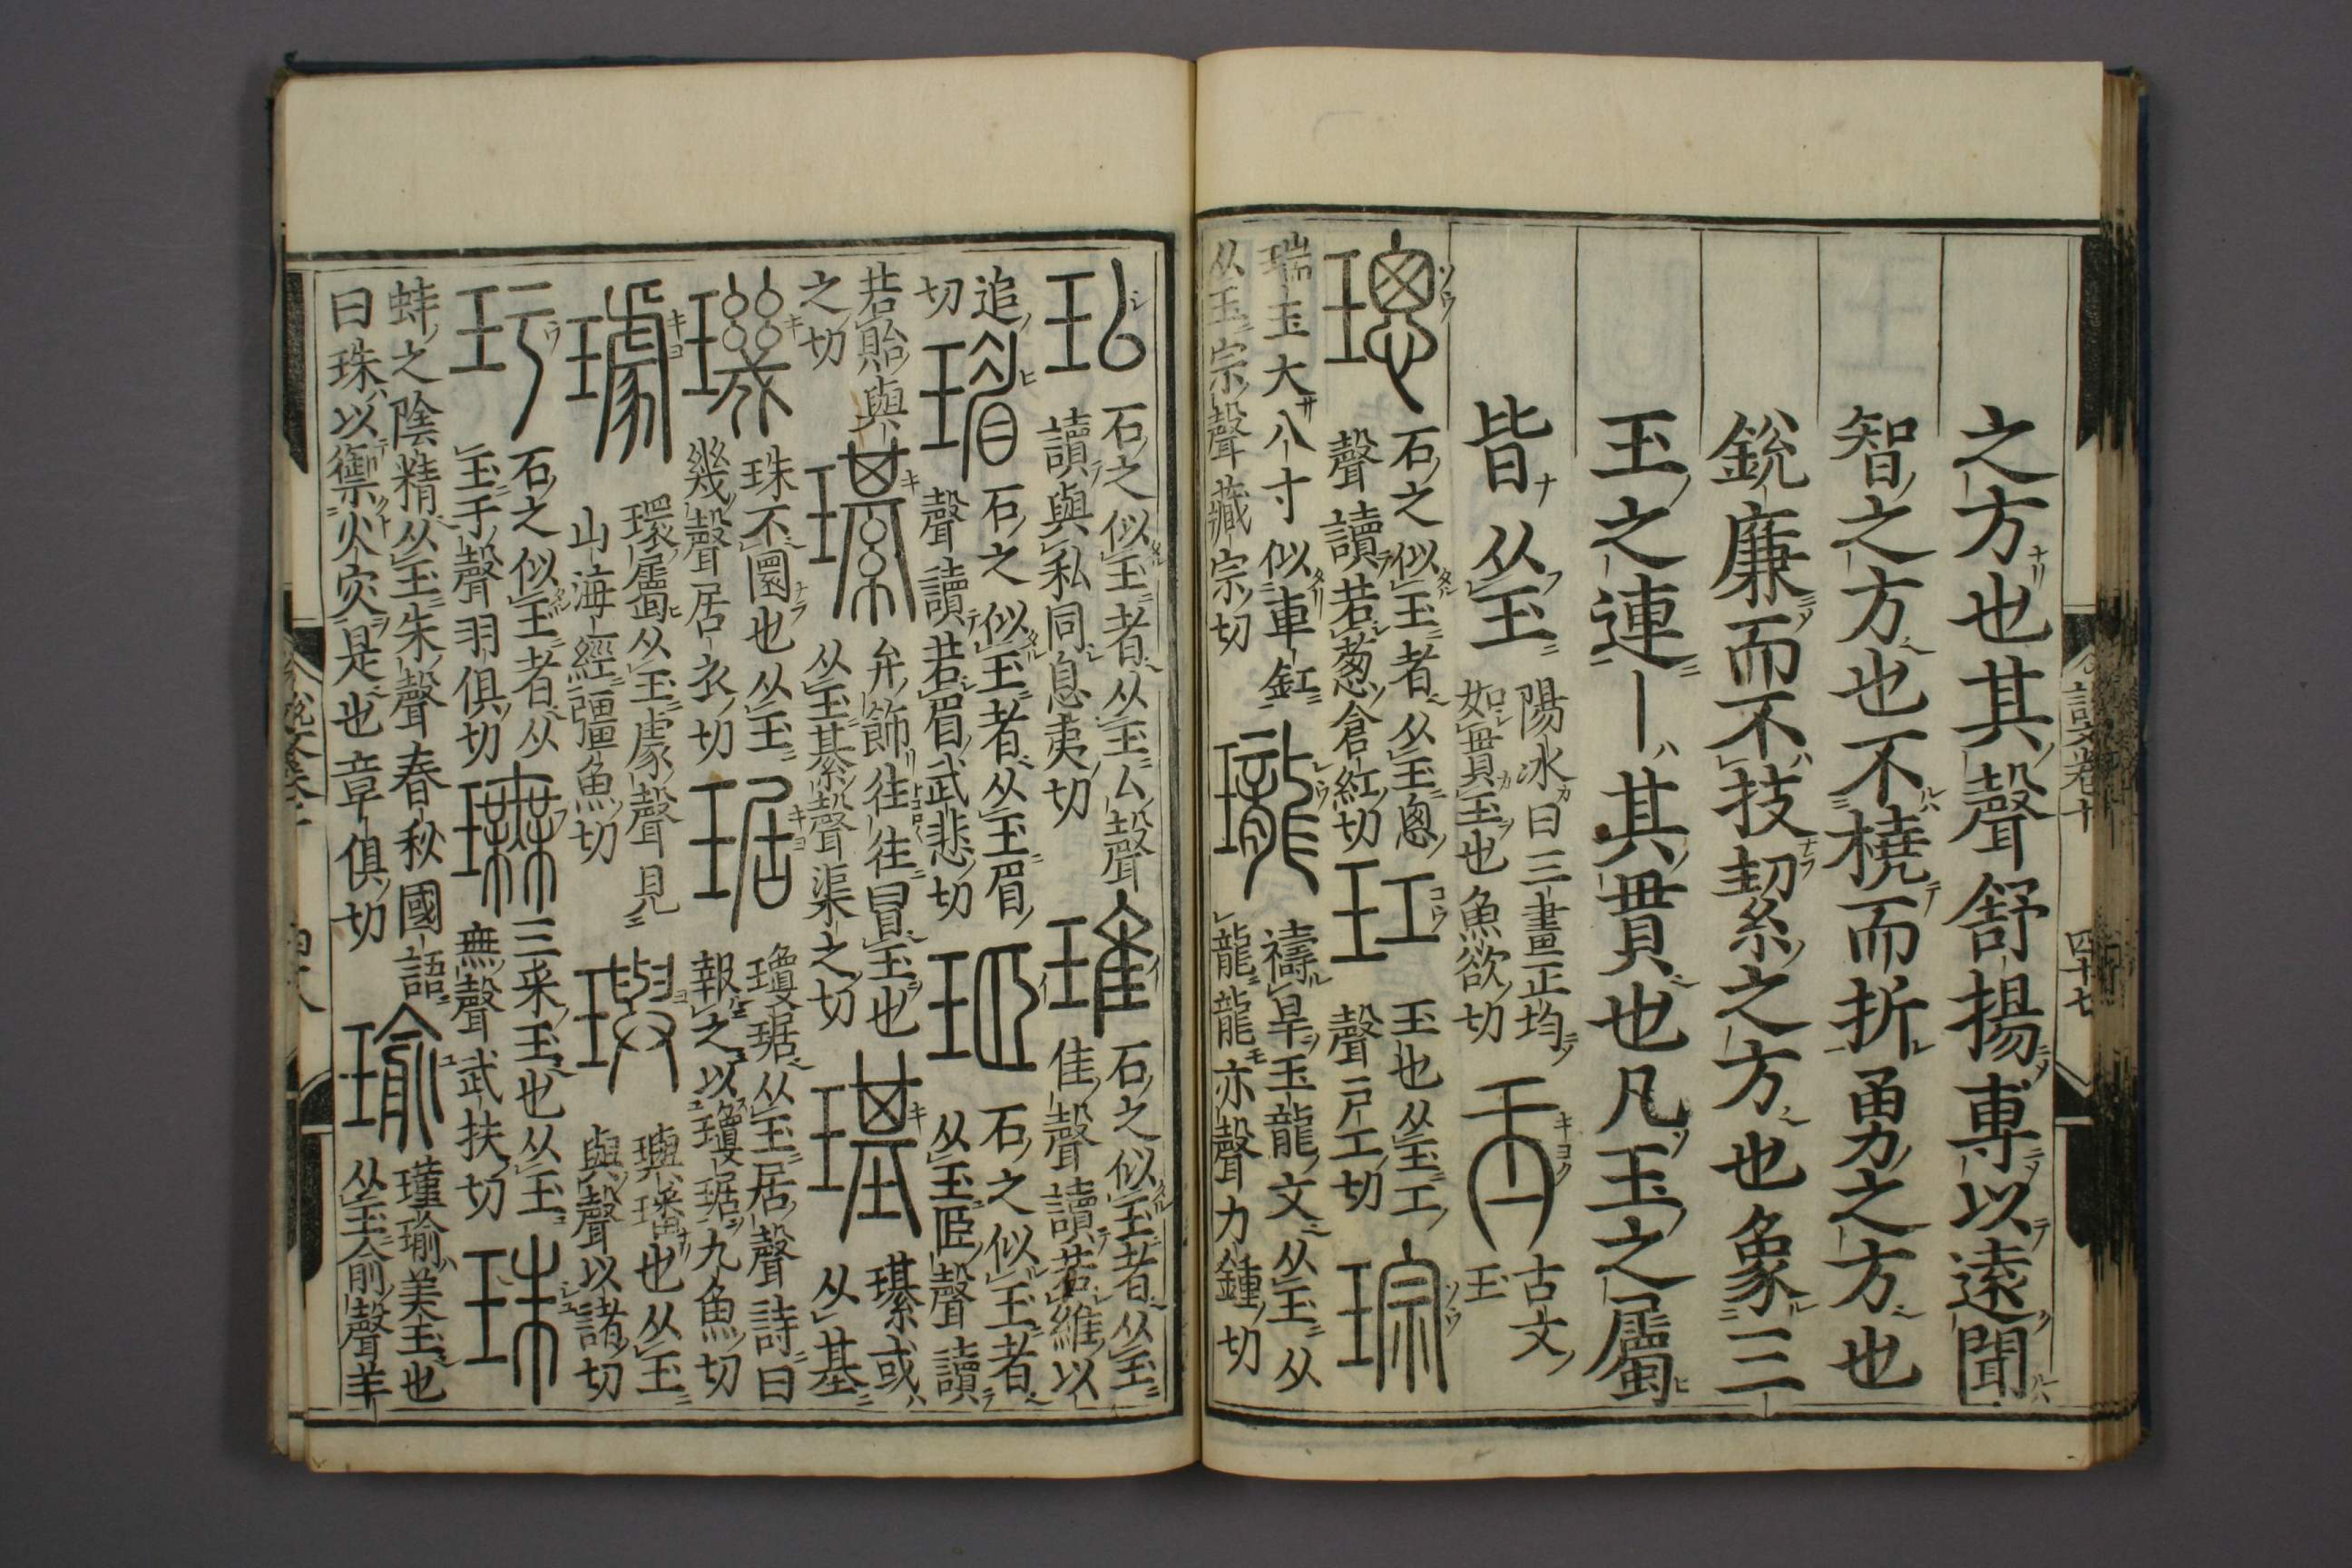 之方也其聲舒揚專以遠聞
智之方也不橈而折勇之方也
銳廉而不技絜之方也象三
玉之連丨其貫也凡玉之屬
皆从玉
陽冰曰三畫正均
如貫玉也魚欲切
古文
玉
璁
石之似玉者从玉悤
聲讀若蔥倉紅切
玒
玉也从玉工
聲戸工切
琮
瑞玉大八寸似車釭
从玉宗聲藏宗切
瓏
禱旱玉龍文从玉从
龍龍亦聲力鍾切
四十七
玜
石之似玉者从玉厶聲
讀與私同息夷切
琟
石之似玉者从玉
隹聲讀若維以
追
切
瑂
石之似玉者从玉眉
聲讀若眉武悲切
㺿
石之似玉者
从玉𦣞聲讀
若貽與
之切
璂
弁飾往往冒玉也
从玉綦聲渠之切
璂
璂或
从基
璣
珠不圜也从玉
幾聲居衣切
琚
瓊琚从玉居聲詩曰
報之以瓊琚九魚切
璩
環屬从玉豦聲見
山海經彊魚切
璵
璵璠也从玉
與聲以諸切
玗
石之似玉者从
玉亐聲羽俱切
璑
三采玉也从玉
無聲武扶切
珠
蚌之陰精从玉朱聲春秋國語
曰珠以禦火灾是也章俱切
瑜
瑾瑜美玉也
从玉俞聲羊